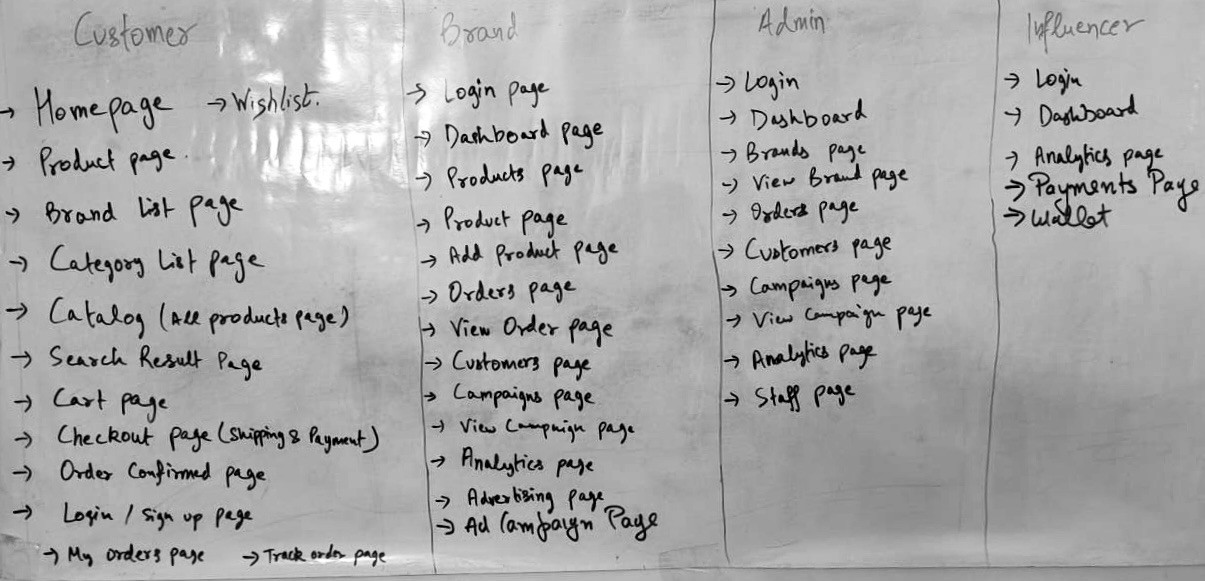 Customer
→ Homepage → Wishlist.
→ Product page.
→ Brand List page
→ Category List page
→ Catalog (All products page)
→ Search Result Page
→ Cart page
→ Checkout page (Shipping & Payment)
→ Order Confirmed page
→ Login / Sign up page
→ My orders page → Track order page
Brand
→ Login page
→ Dashboard page
→ Products page
→ Product page
→ Add Product page
→ Orders page
→ View Order page
→ Customers page
→ Campaigns page
→ View Campaign page
→ Analytics page
→ Advertising page
→ Ad Campaign Page
Admin
→ Login
→ Dashboard
→ Brands page
→ View Brand page
→ Orders page
→ Customers page
→ Campaigns page
→ View Campaign page
→ Analytics page
→ Staff page
Influencer
→ Login
→ Dashboard
→ Analytics page
→ Payments Page
→ Wallet